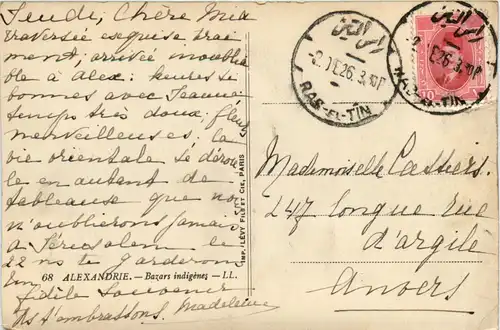 Jeudi, Chère Mia
traversée exquise vrai
ment; arrivée inoublia
ble à Alex: heures si
bonnes avec Jeanne
temps très doux, fleurs
merveilleuses. la
vie orientale se dérou
le en autant de
tableaux que nous
n'oublierons jamais
a Jerusalem le
22 ns te garderons
un fidèle Souvenir
Ns t'embrassons. Madeleine
68 ALEXANDRIE. — Bazars indigènes — LL.
IMP. LÉVY FILS ET CIE, PARIS
راس التين
RAS-EL-TIN
راس التين
RAS-EL-TIN
10
Mademoiselle Cassiers.
247 longue rue
d'argile
Anvers